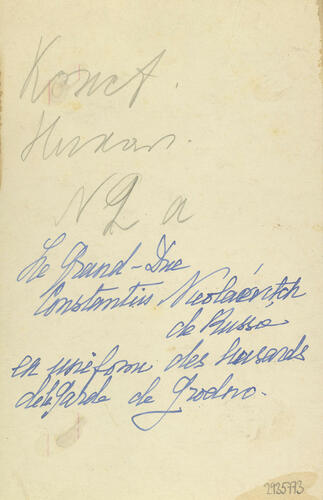 Konst.
Nikan.
N 2 a
Le Grand-Duc
Constantin Nicolaévitch
de Russie
en uniform des housards
de la garde de Grodno.
2935773